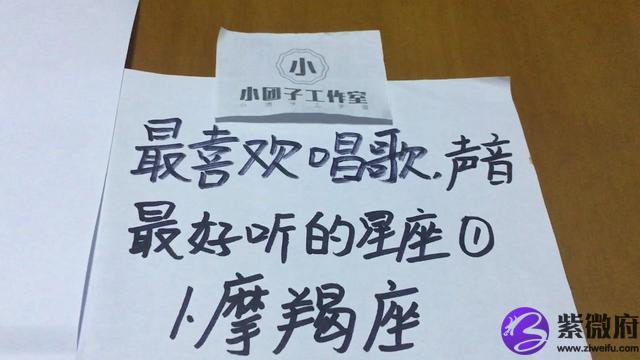 小
小团子工作室
最喜欢唱歌.声音
最好听的星座①
1.摩羯座
紫微府
www.ziweifu.com